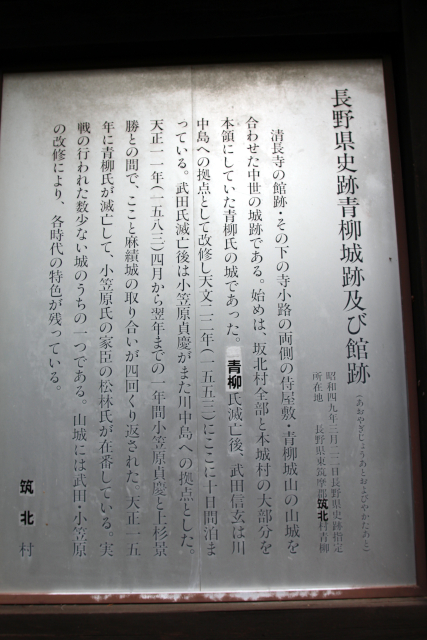 長野県史跡青柳城跡及び館跡
(あおやぎじょうあとおよびやかたあと)
昭和四九年三月二二日長野県史跡指定
所在地 長野県東筑摩郡筑北村青柳
清長寺の館跡・その下の寺小路の両側の侍屋敷・青柳城山の山城を
合わせた中世の城跡である。始めは、坂北村全部と本城村の大部分を
本領にしていた青柳氏の城であった。青柳氏滅亡後、武田信玄は川
中島への拠点として改修し天文二二年(一五五三)にここに十日間泊ま
っている。武田氏滅亡後は小笠原貞慶がまた川中島への拠点とした。
天正一一年(一五八三)四月から翌年までの一年間小笠原貞慶と上杉景
勝との間で、ここと麻績城の取り合いが四回くり返された。天正一五
年に青柳氏が滅亡して、小笠原氏の家臣の松林氏が在番している。実
戦の行われた数少ない城のうちの一つである。山城には武田・小笠原
の改修により、各時代の特色が残っている。
筑北村